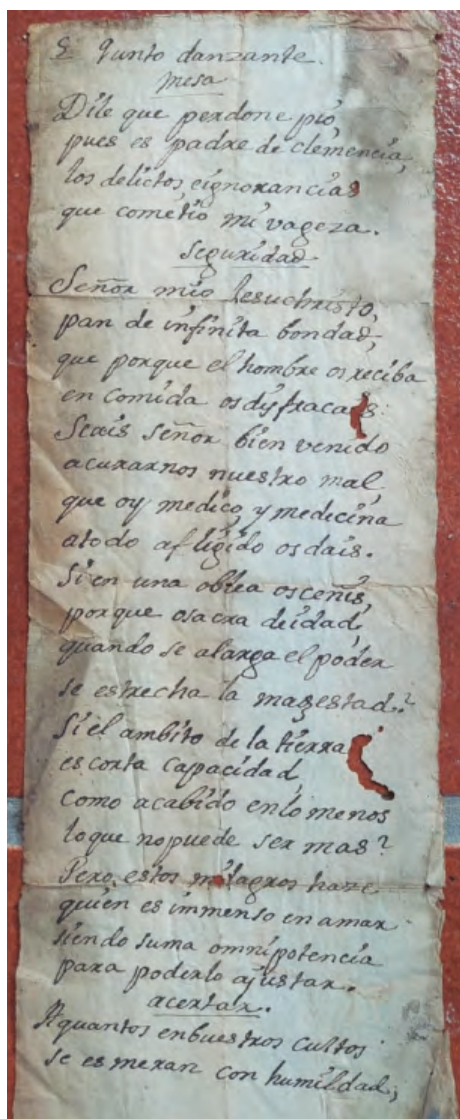 § Punto danzante.
mesa
Dile que perdone pio,
pues es padre de clemencia,
los delictos, eignorancias
que cometio mi vageza.
seguridad
Señor mio Jesuchristo,
pan de infinita bondad,
que porque el hombre os reciba
en comida os dysfracais
Seais Señor bien venido
acurarnos nuestro mal,
que oy medico, y medicina
atodo afligido os dais.
Si en una oblea osceñis,
porque osacra deidad,
quando se alarga el poder
se estrecha la magestad?
Si el ambito de la tierra
es corta capacidad,
como acabido enlo menos
loque nopuede ser mas?
Pero, estos milagros haze
quien es immenso en amar
siendo suma omnipotencia
para poderlo ajustar.
acertar.
A quantos enbuestros cultos
se esmeran con humildad,